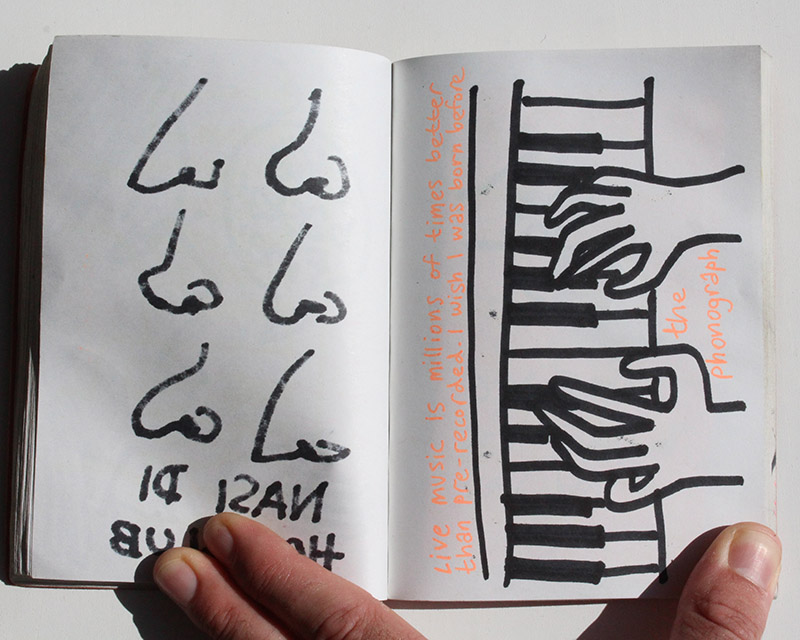 NASI DI
Live music is millions of times better
than pre-recorded. I wish I was born before
the
phonograph